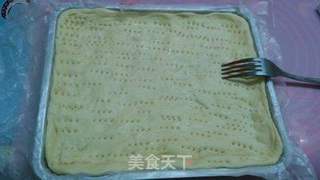 美食天下